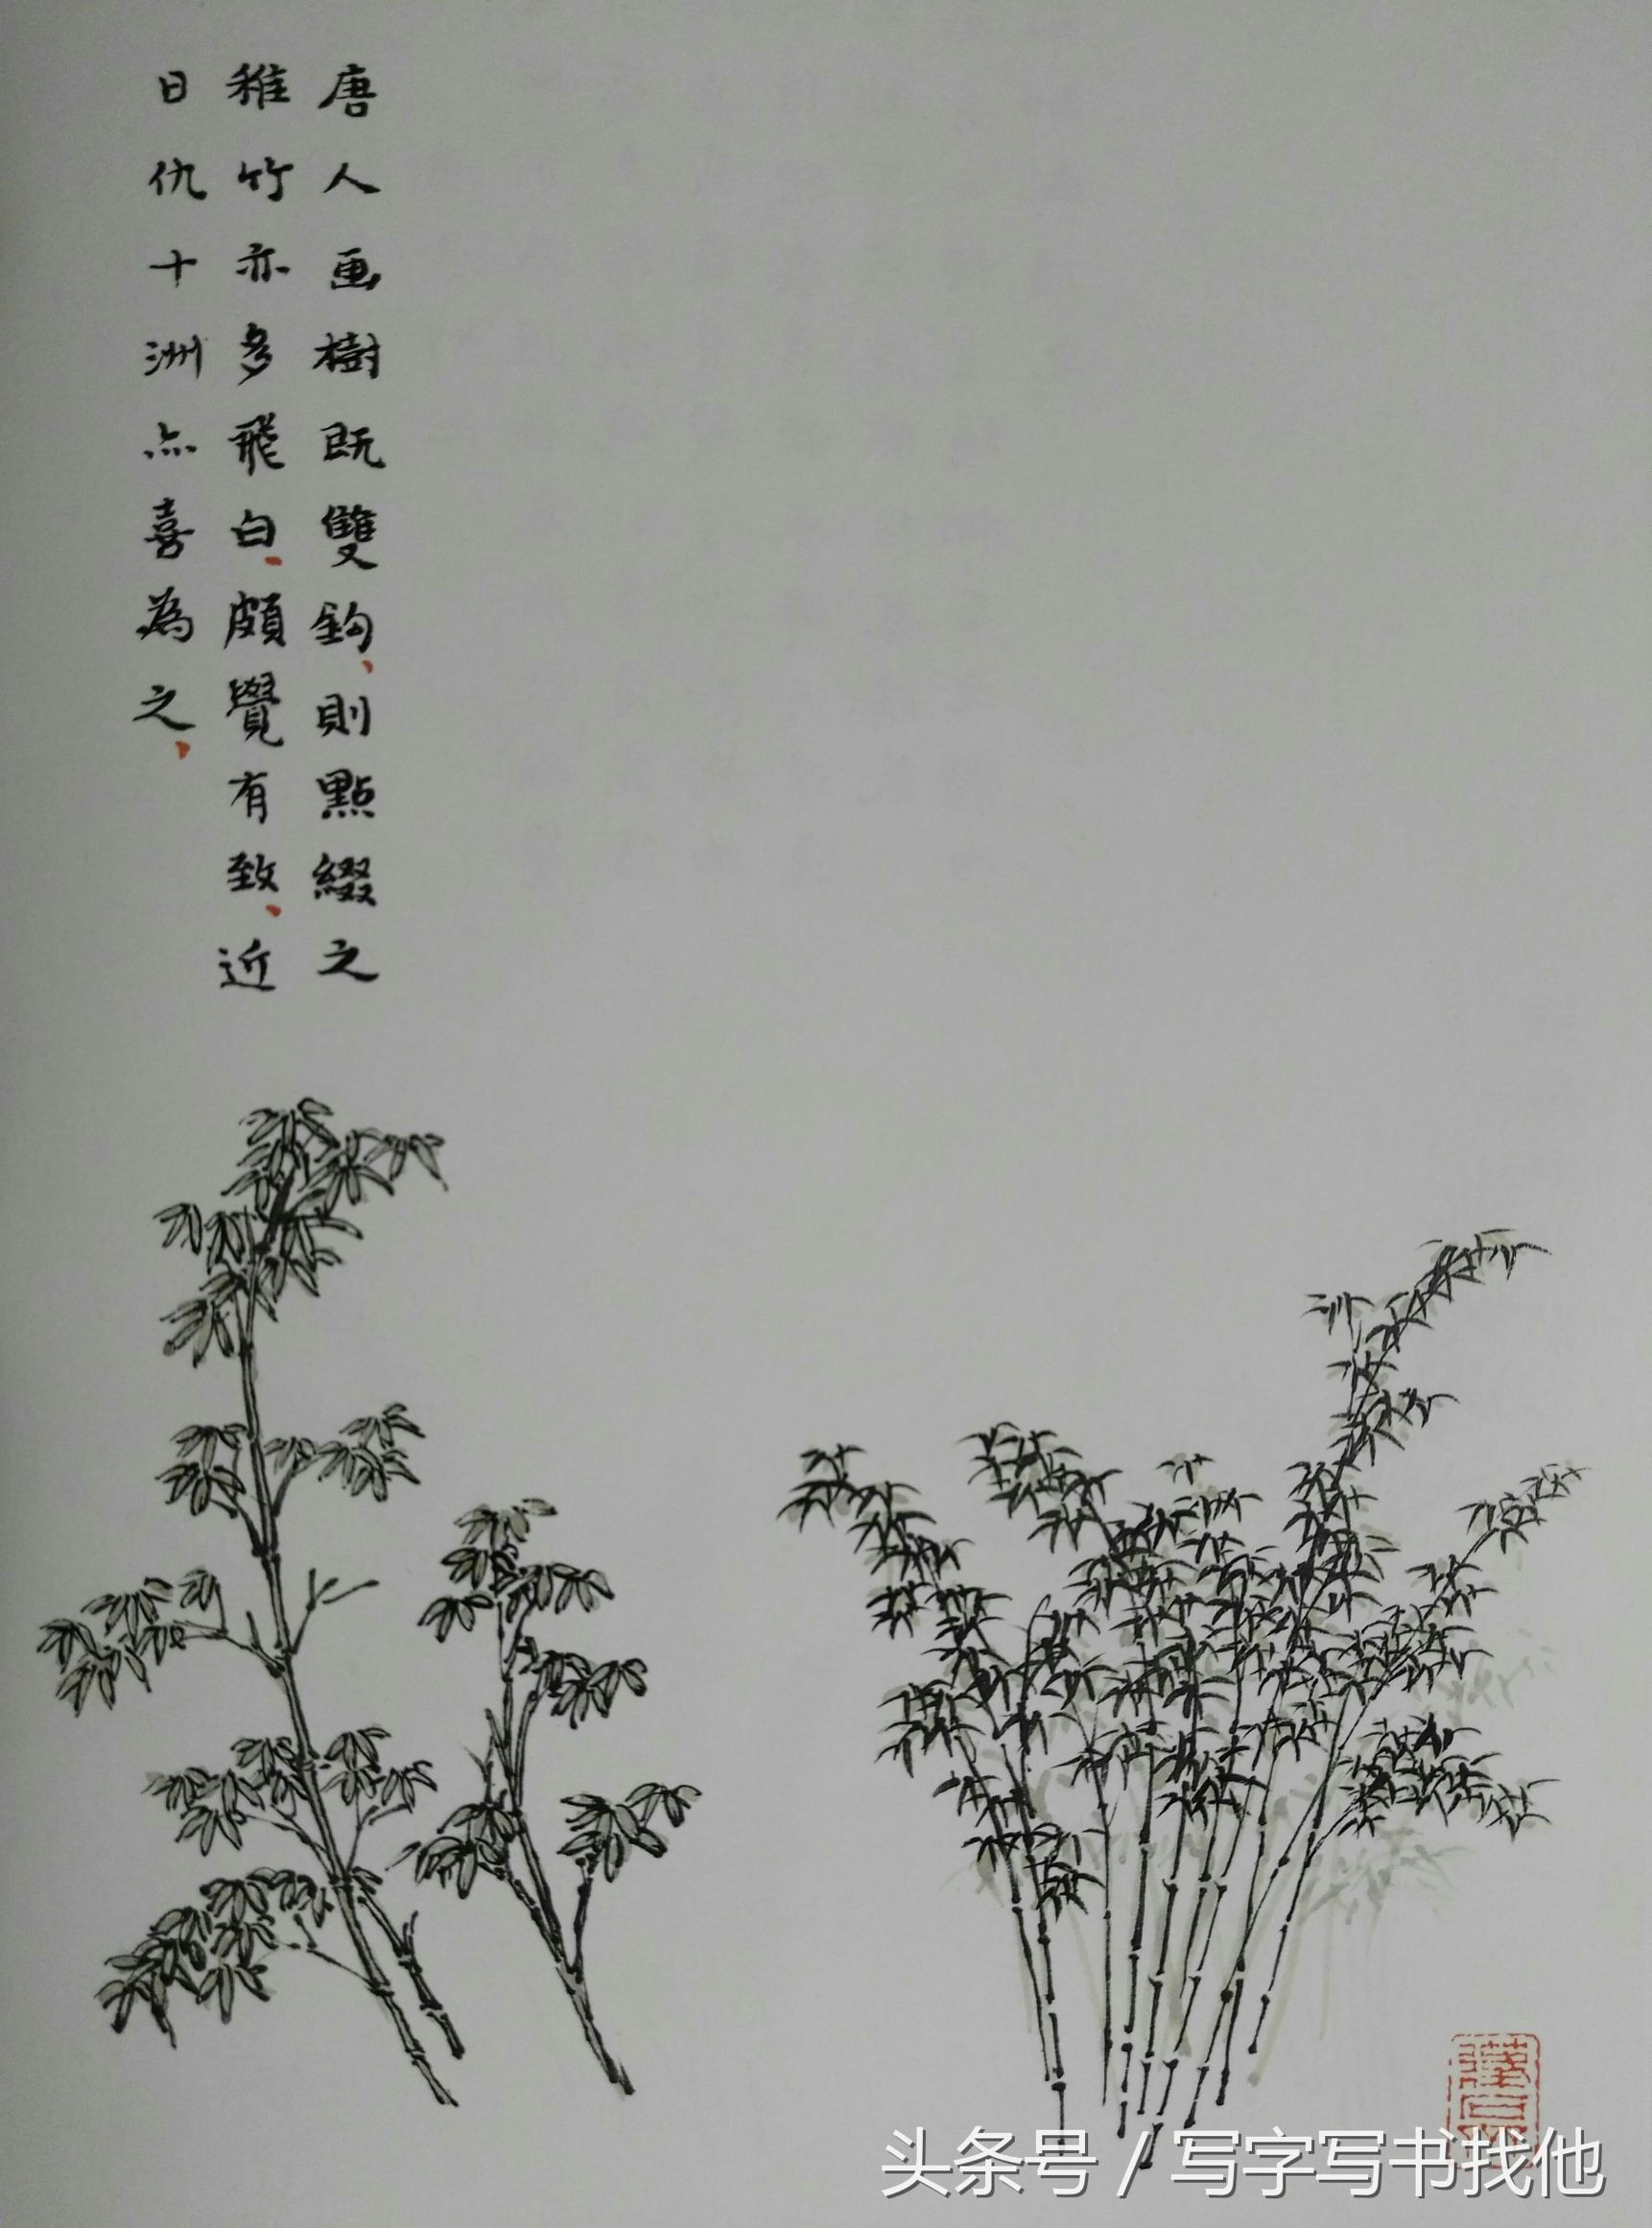 唐人画樹既雙鈎、則點綴之
稚竹亦多飛白、頗覺有致、近
日仇十洲亦喜為之、
头条号 / 写字写书找他